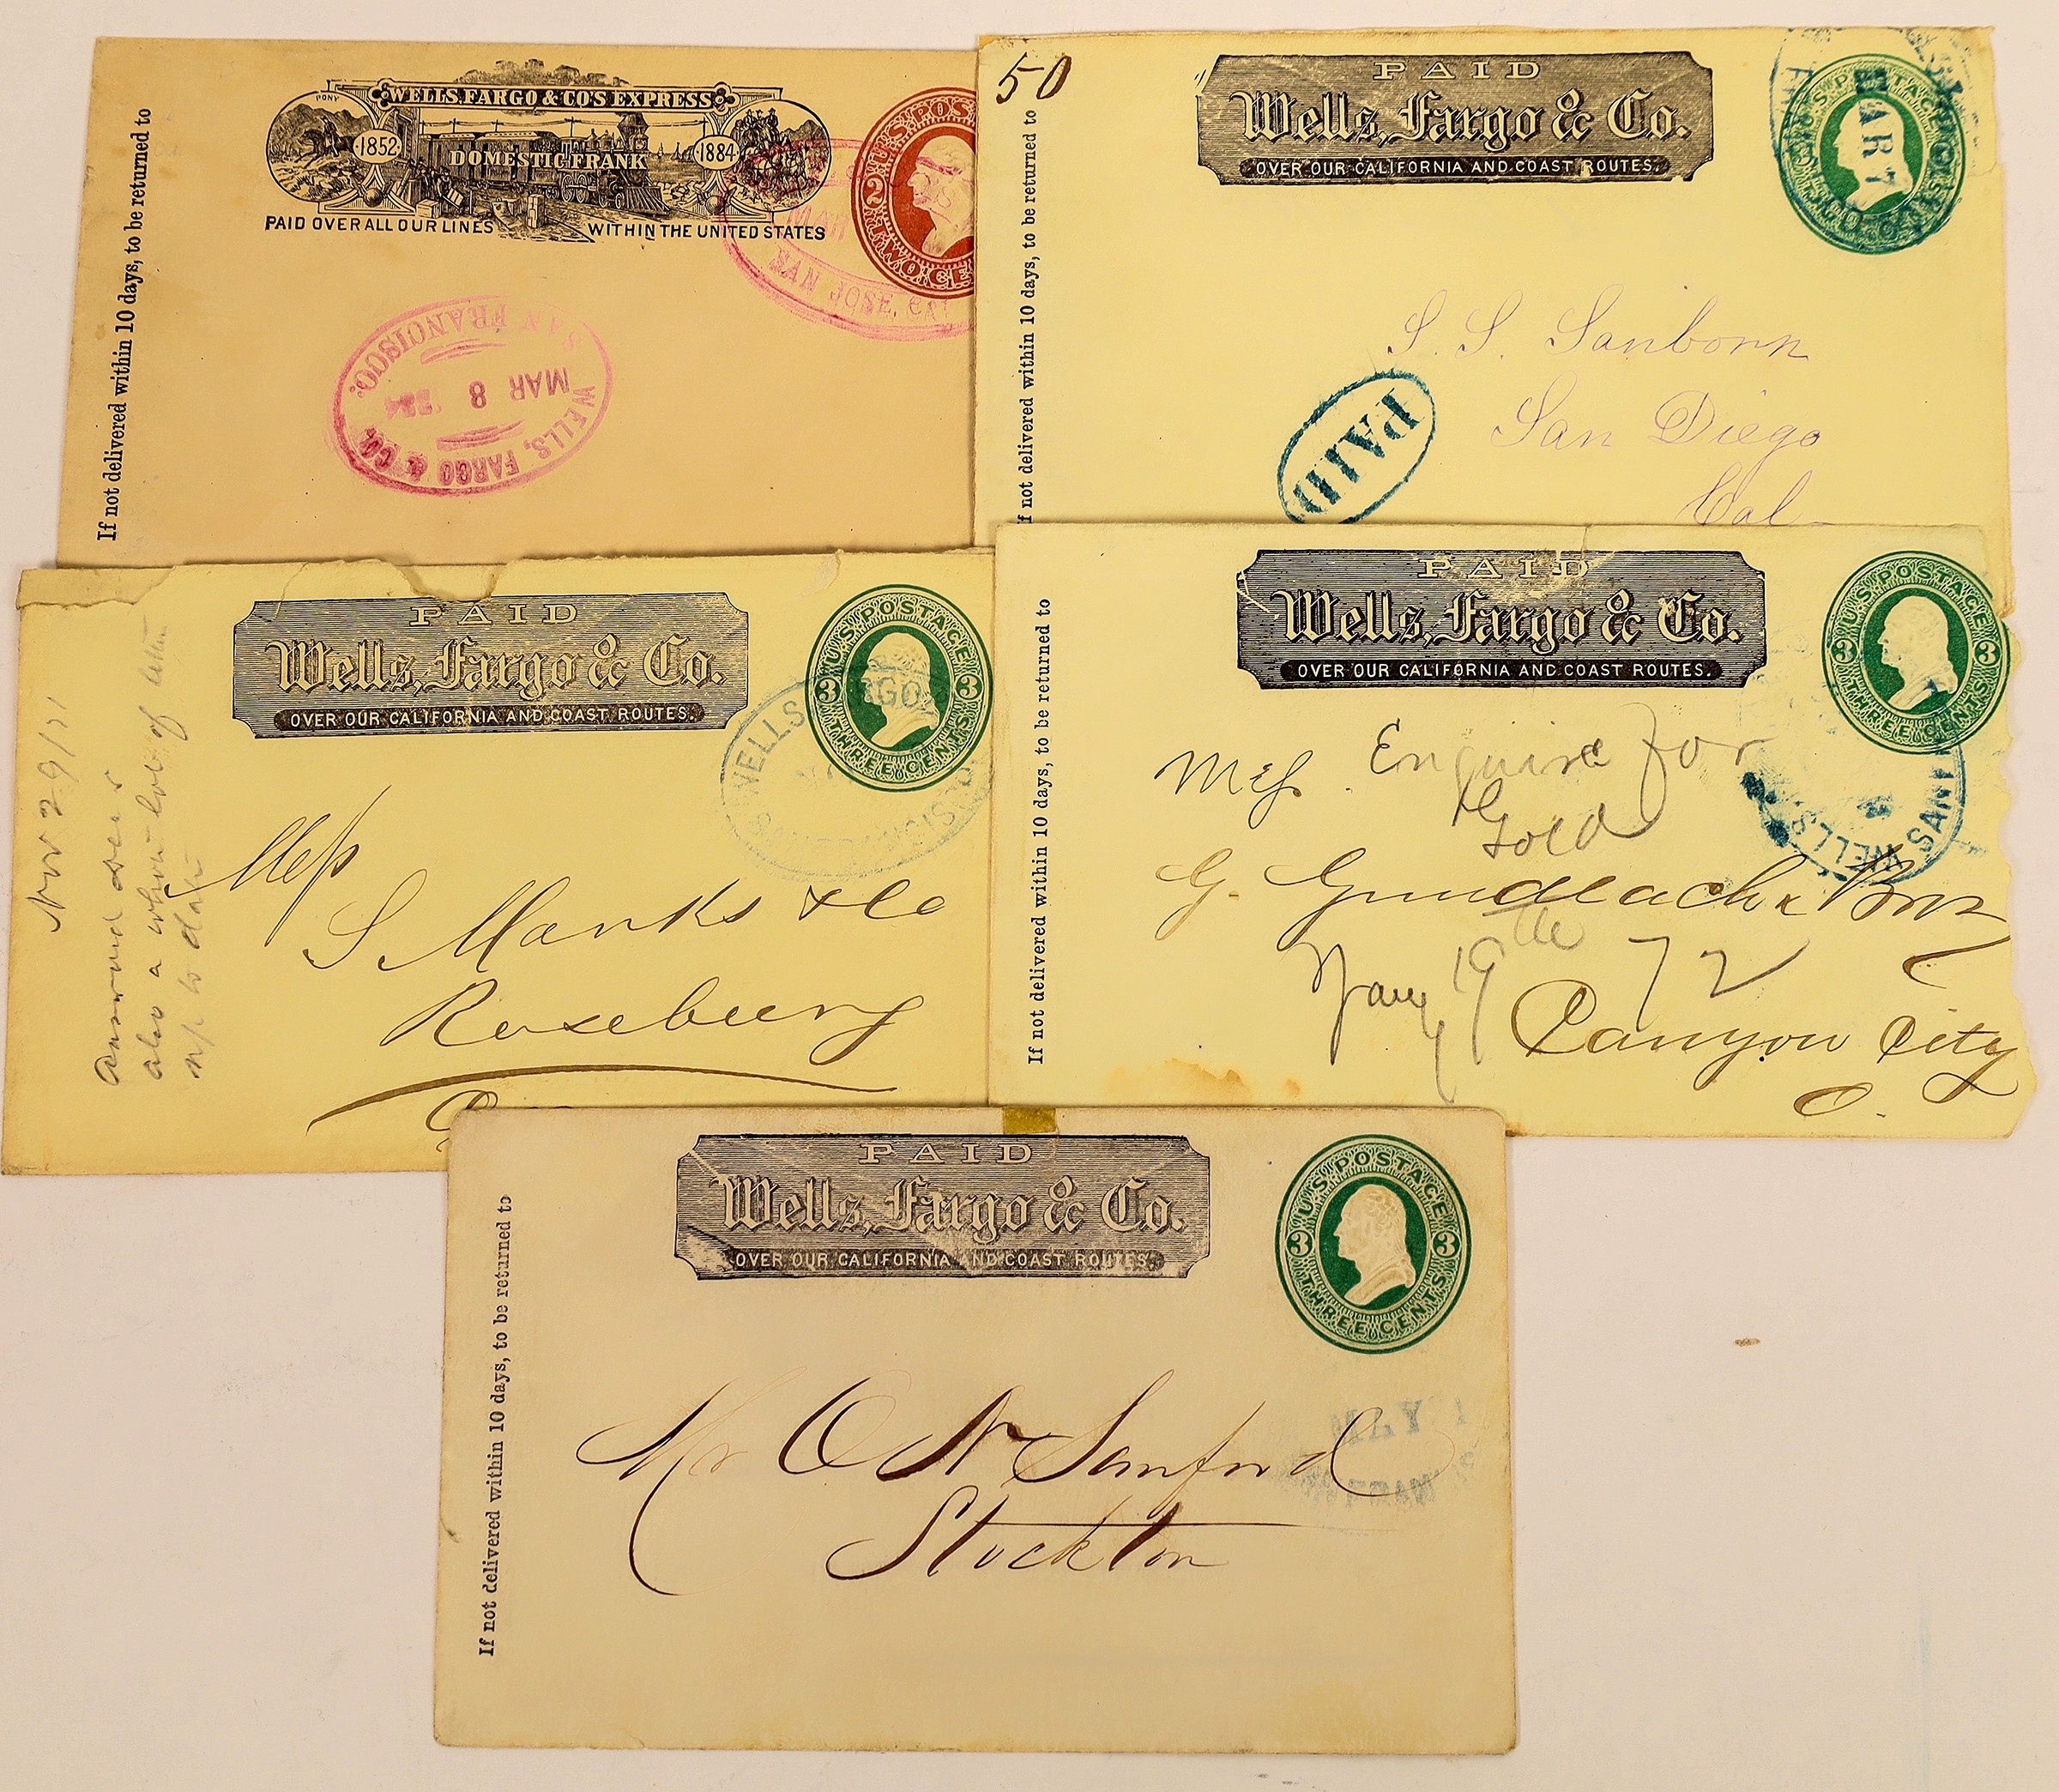 If not delivered within 10 days, to be returned to
PONY
WELLS, FARGO & CO'S EXPRESS
1852
DOMESTIC FRANK
1884
PAID OVER ALL OUR LINES WITHIN THE UNITED STATES
U.S. POS
2
TWO CE
MAR
SAN JOSE, CAL
SAN FRANCISCO.
MAR 8
WELLS, FARGO & CO.
50
f not delivered within 10 days, to be returned to
PAID
Wells, Fargo & Co.
OVER OUR CALIFORNIA AND COAST ROUTES.
U.S. POSTAGE
MAR 7
S. S. Sanborn
San Diego
Cal
PAID
Nov 29/71
also a
up to date
PAID
Wells, Fargo & Co.
OVER OUR CALIFORNIA AND COAST ROUTES.
U.S. POSTAGE
3 3
THREE CENTS
WELLS FARGO &
SAN FRANCISCO
Mess
S Marks & Co
Roseburg
If not delivered within 10 days, to be returned to
PAID
Wells, Fargo & Co.
OVER OUR CALIFORNIA AND COAST ROUTES.
U.S. POSTAGE
3 3
THREE CENTS
WELLS
SAN
Mess. Enquire for
Gold
G. Gundlach & Bro
Jany 19th 72
Canyon City
O.
If not delivered within 10 days, to be returned to
PAID
Wells, Fargo & Co.
OVER OUR CALIFORNIA AND COAST ROUTES.
U.S. POSTAGE
3 3
THREE CENTS
MAY 1
SAN FRAN
Mr O N Sanford
Stockton